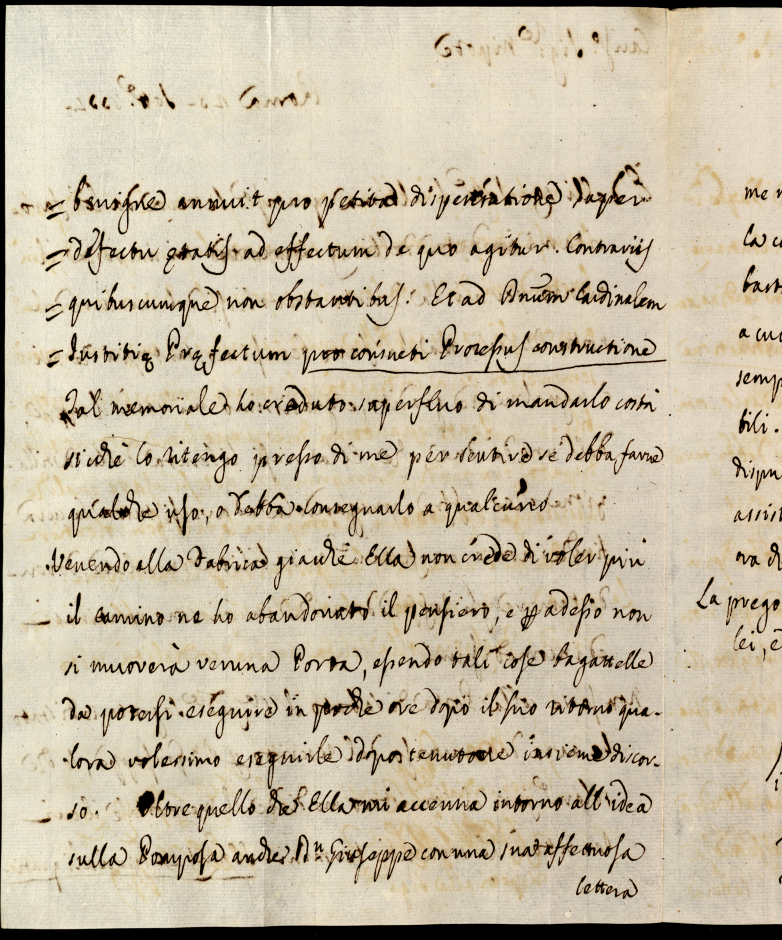 = benigne annuit pro petita dispensatione super
= defectu ętatis ad effectum de quo agitur. Contrariis
= quibuscumque non obstantibus. Et ad Dnum Cardinalem
= Iustitię Pręfectum pro consueti Processus constructione
Tal memoriale ho creduto superfluo di mandarlo costì
sicche lo ritengo presso di me per sentire se debba farne
qualche uso, o debba consegnarlo a qualcuno
Venendo alla Fabrica giache Ella non crede di voler più
il camino ne ho abandonato il pensiero, e p adesso non
si muoverà veruna Porta, essendo tali cose bagattelle
da potersi eseguire in poche ore dopo il suo ritorno qua-
lora volessimo eseguirle dopo tenutone insieme discor-
so. Oltre quello che Ella mi accenna intorno all'idea
sulla Pomposa anche Dn Giuseppe con una sua affettuosa
lettera
me
la
bast
a cu
semp
bili.
dispu
assist
ora
La prego
lei, è